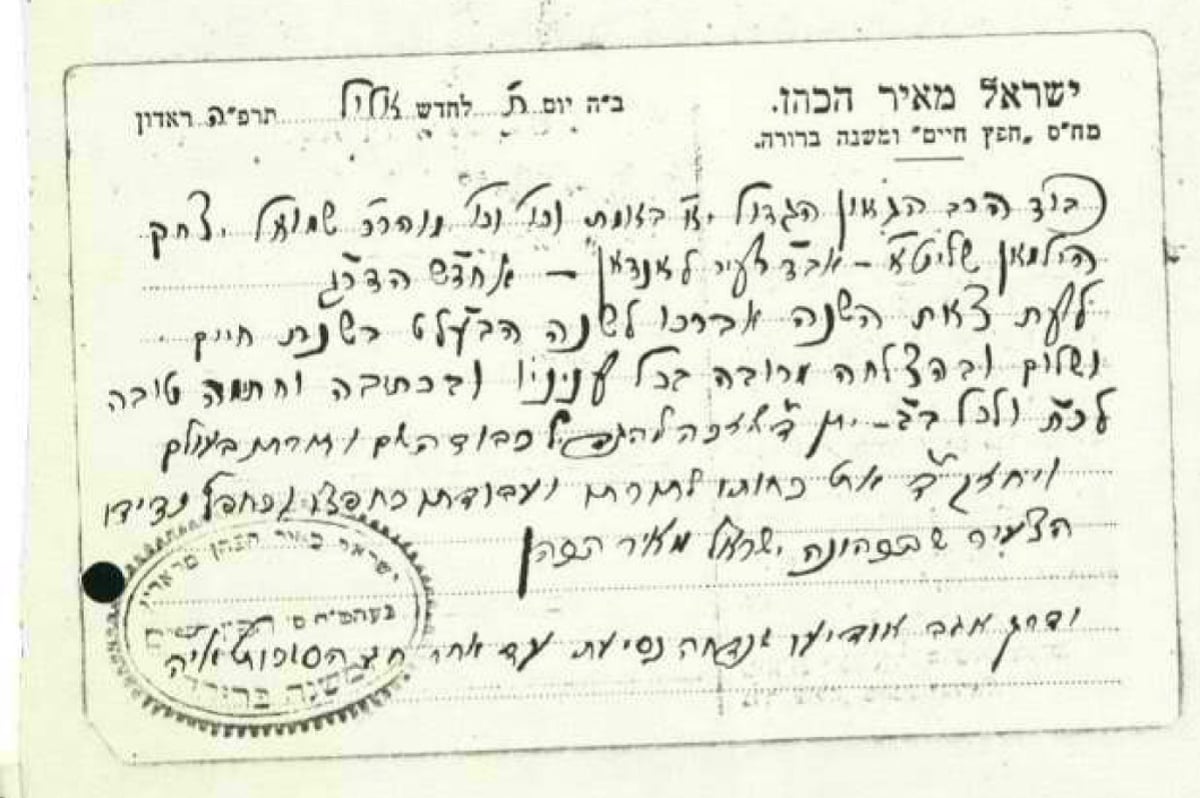 ישראל מאיר הכהן.
מח"ס „חפץ חיים" ומשנה ברורה.
ב"ה יום ח' לחדש אלול תרפ"ה ראדין
כבוד הרב הגאון הגדול יו"א באמת וכו' וכו' מוהר"ר שמואל יצחק
הילמאן שליט"א – אב"ד בעיר לאנדאן – אחדש"ה הדר"ג
לעת צאת השנה אברכו לשנה הבעל"ט בשנת חיים
ושלום ובהצלחה מרובה בכל עניניו ובכתיבה וחתימה טובה
לכ"ת ולכל ב"ב – יתן ד' שיזכה להגדיל כבוד השם ותורתו בעולם
ויחזק ד' את כחותיו לתורתו ועבודתו כחפצו וכחפץ ידידו
הצעיר שבכהונה ישראל מאיר הכהן
ודרך אגב אודיעו שנדחה נסיעתי עד אחר חג הסוכות אי"ה
ישראל מאיר הכהן מראדין
משנה ברורה